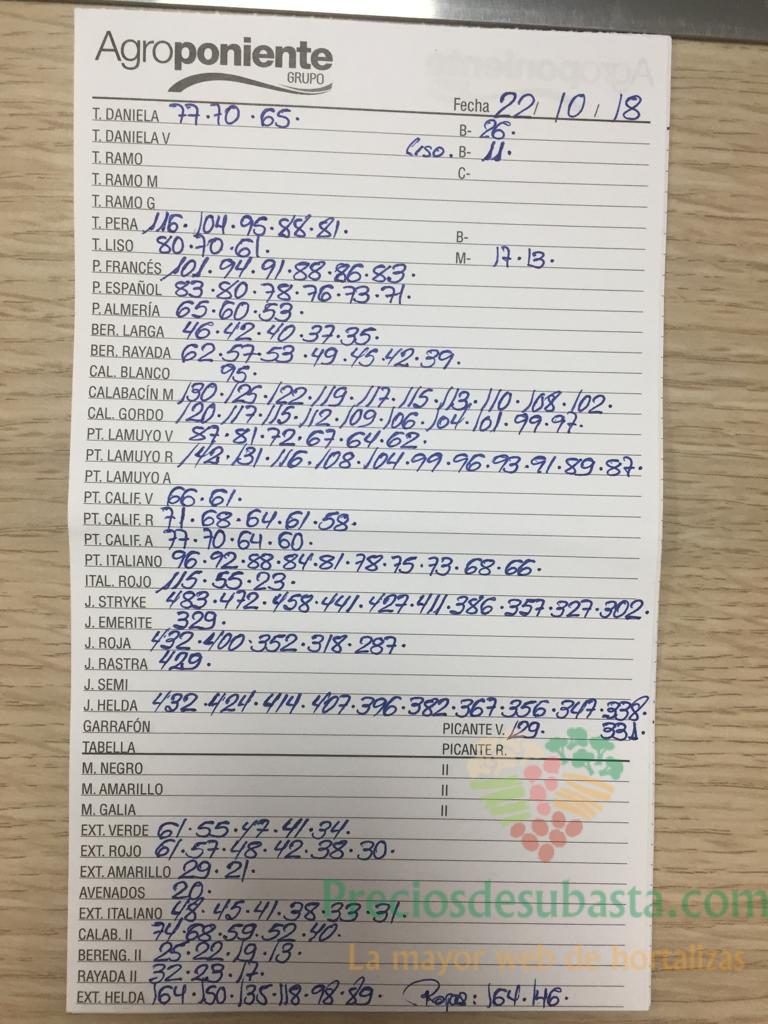 Agroponiente
GRUPO
Fecha 22 / 10 / 18
T. DANIELA 77.70.65. B- 26.
T. DANIELA V Liso. B- 11.
T. RAMO C-
T. RAMO M
T. RAMO G
T. PERA 116.104.95.88.81. B-
T. LISO 80.70.61. M- 17.13.
P. FRANCÉS 101.94.91.88.86.83.
P. ESPAÑOL 83.80.78.76.73.71.
P. ALMERÍA 65.60.53.
BER. LARGA 46.42.40.37.35.
BER. RAYADA 62.57.53.49.45.42.39.
CAL. BLANCO 95.
CALABACÍN M 130.125.122.119.117.115.113.110.108.102.
CAL. GORDO 120.117.115.112.109.106.104.101.99.97.
PT. LAMUYO V 87.81.72.67.64.62.
PT. LAMUYO R 142.131.116.108.104.99.96.93.91.89.87.
PT. LAMUYO A
PT. CALIF. V 66.61.
PT. CALIF. R 71.68.64.61.58.
PT. CALIF. A 77.70.64.60.
PT. ITALIANO 96.92.88.84.81.78.75.73.68.66.
ITAL. ROJO 115.55.23.
J. STRYKE 483.472.458.441.427.411.386.357.327.302.
J. EMERITE 329.
J. ROJA 432.400.352.318.287.
J. RASTRA 429.
J. SEMI
J. HELDA 432.424.414.407.396.382.367.356.347.338.
GARRAFÓN PICANTE V. 129. 331.
TABELLA PICANTE R.
M. NEGRO II
M. AMARILLO II
M. GALIA II
EXT. VERDE 61.55.47.41.34.
EXT. ROJO 61.57.48.42.38.30.
EXT. AMARILLO 29.21.
AVENADOS 20.
EXT. ITALIANO 48.45.41.38.33.31.
CALAB. II 74.68.59.52.40.
BERENG. II 25.22.19.13.
RAYADA II 32.23.17.
EXT. HELDA 164.150.135.118.98.89. Rojas: 164.146.
Preciosdesubasta.com
La mayor web de hortalizas